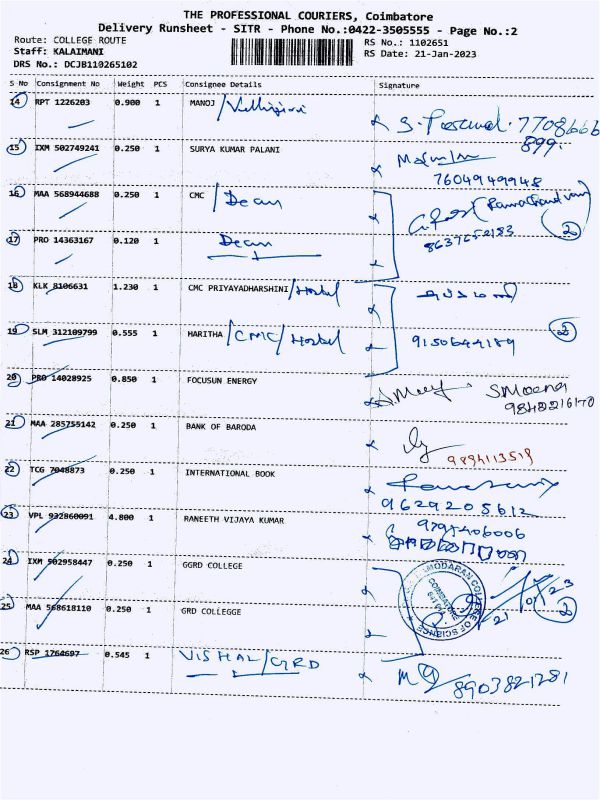 THE PROFESSIONAL COURIERS, Coimbatore
Delivery Runsheet - SITR - Phone No.:0422-3505555 - Page No.:2
Route: COLLEGE ROUTE
RS No.: 1102651
Staff: KALAIMANI
RS Date: 21-Jan-2023
DRS No.: DCJB110265102
S No Consignment No Weight PCS Consignee Details Signature
14 RPT 1226203 0.900 1 MANOJ / 7708666
899.
15 IXM 502749241 0.250 1 SURYA KUMAR PALANI
7604949948
16 MAA 568944688 0.250 1 CMC / Dean
8637652183 2
17 PRO 14363167 0.120 1 Dean
18 KLK 8106631 1.230 1 CMC PRIYAYADHARSHINI / Hostel
19 SLM 312109799 0.555 1 HARITHA / CMC / Hostel 9150644189 2
20 PRO 14028925 0.850 1 FOCUSUN ENERGY S Meena
21 MAA 285755142 0.250 1 BANK OF BARODA
9894113519
22 TCG 7048873 0.250 1 INTERNATIONAL BOOK
9629205612
23 VPL 932860091 4.800 1 RANEETH VIJAYA KUMAR
24 IXM 502958447 0.250 1 GGRD COLLEGE
COLLEGE OF SCIENCE
COIMBATORE
25 MAA 568618110 0.250 1 GRD COLLEGGE 2
26 RSP 1764697 0.545 1 VISHAL / GRD
8903821281